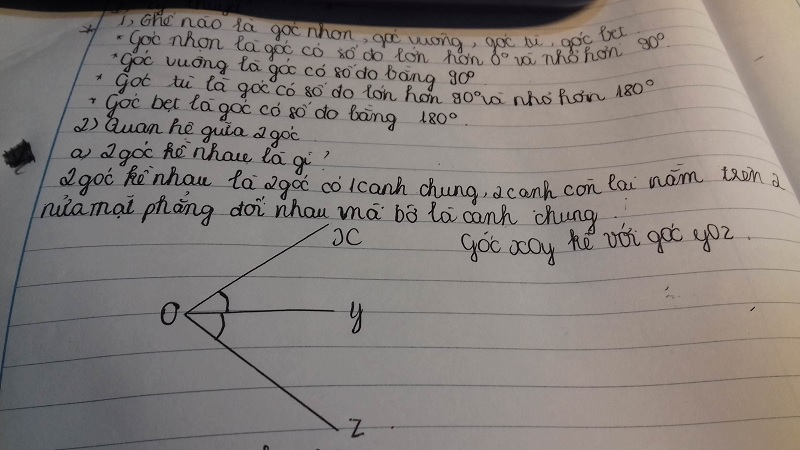 * 1, thế nào là góc nhọn, góc vuông, góc tù, góc bẹt
* Góc nhọn là góc có số đo lớn hơn 0° và nhỏ hơn 90°
* góc vuông là góc có số đo bằng 90°
* Góc tù là góc có số đo lớn hơn 90° và nhỏ hơn 180°
* Góc bẹt là góc có số đo bằng 180°
2) Quan hệ giữa 2 góc
a) 2 góc kề nhau là gì?
2 góc kề nhau là 2 góc có 1 cạnh chung, 2 cạnh còn lại nằm trên 2
nửa mặt phẳng đối nhau mà bờ là cạnh chung
Góc xOy kề với góc yOz.
x
O
y
z